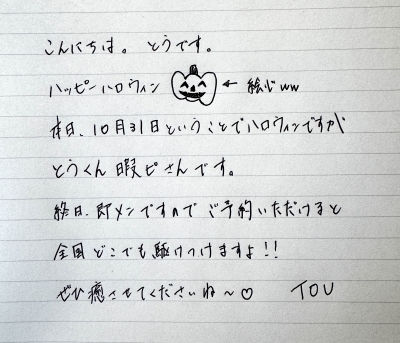 こんにちは。とうです。
ハッピーハロウィン ← 絵心ww
本日、10月31日ということでハロウィンですが
とうくん暇ピさんです。
終日、即メンですのでご予約いただけると
全国どこでも駆けつけますよ!!
ぜひ癒させてくださいね〜♡ TOU